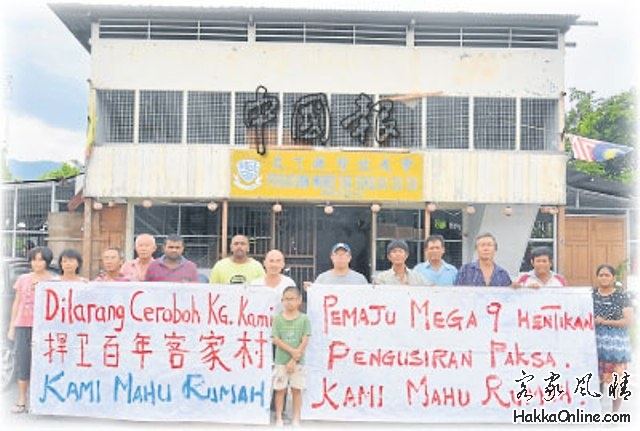 中国报
Dilarang Ceroboh Kg. Kami
捍卫百年客家村
KAMI MAHU RUMAH
PEMAJU MEGA 9 HENTIKAN
PENGUSIRAN PAKSA.
KAMI MAHU RUMAH
客家风情
HakkaOnline.com